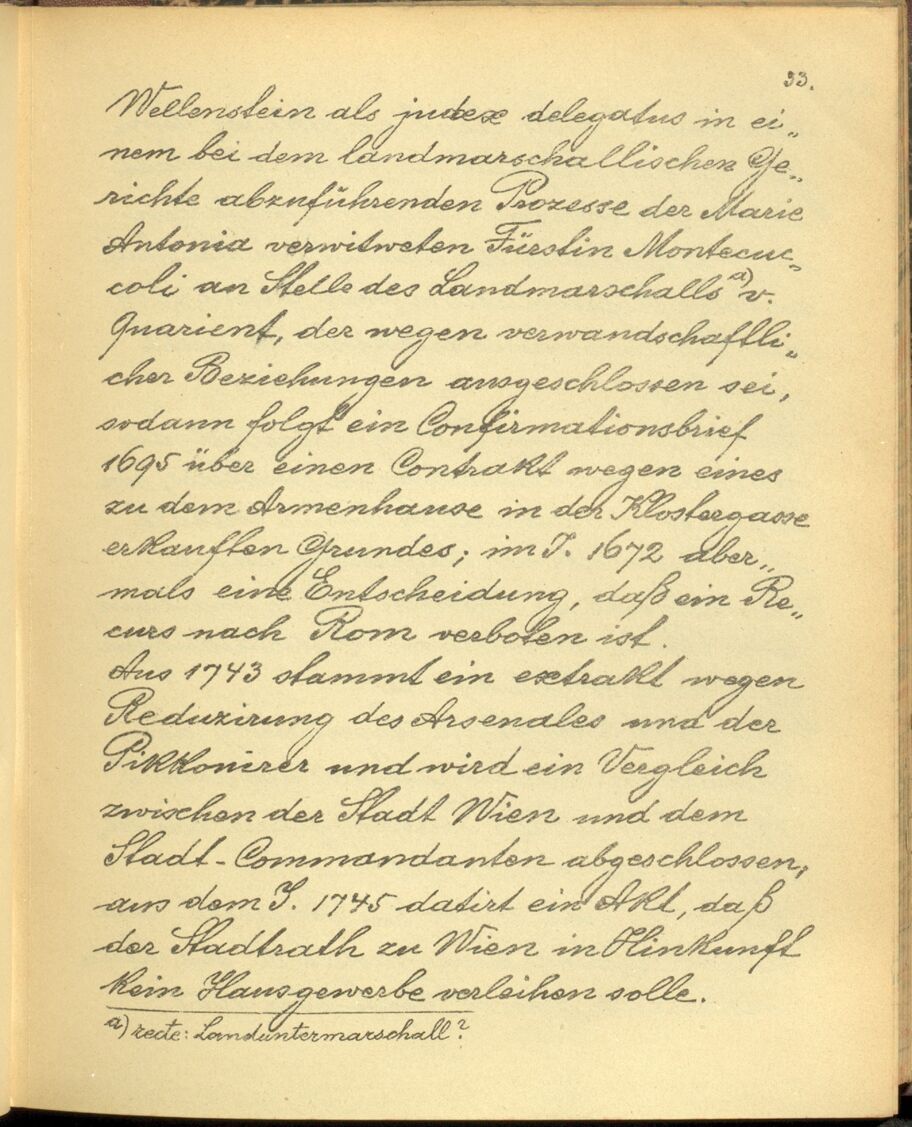 33.
Wellenstein als judex delegatus in ei„
nem bei dem landmarschallischen Ge„
richte abzuführenden Prozesse der Marie
Antonia verwitweten Fürstin Montecuc„
coli an Stelle des Landmarschalls a) v.
Quarient, der wegen verwandschaftli„
cher Beziehungen ausgeschlossen sei,
sodann folgt ein Confirmationsbrief
1695 über einen Contrakt wegen eines
zu dem Armenhause in der Klostergasse
erkauften Grundes; im J. 1672 aber„
mals eine Entscheidung, daß ein Re„
curs nach Rom verboten ist.
Aus 1743 stammt ein extrakt wegen
Reduzirung des Arsenales und der
Pikkonirer und wird ein Vergleich
zwischen der Stadt Wien und dem
Stadt-Commandanten abgeschlossen,
aus dem J. 1745 datirt ein Akt, daß
der Stadtrath zu Wien in Hinkunft
kein Hausgewerbe verleihen solle.
a) recte: Landuntermarschall?